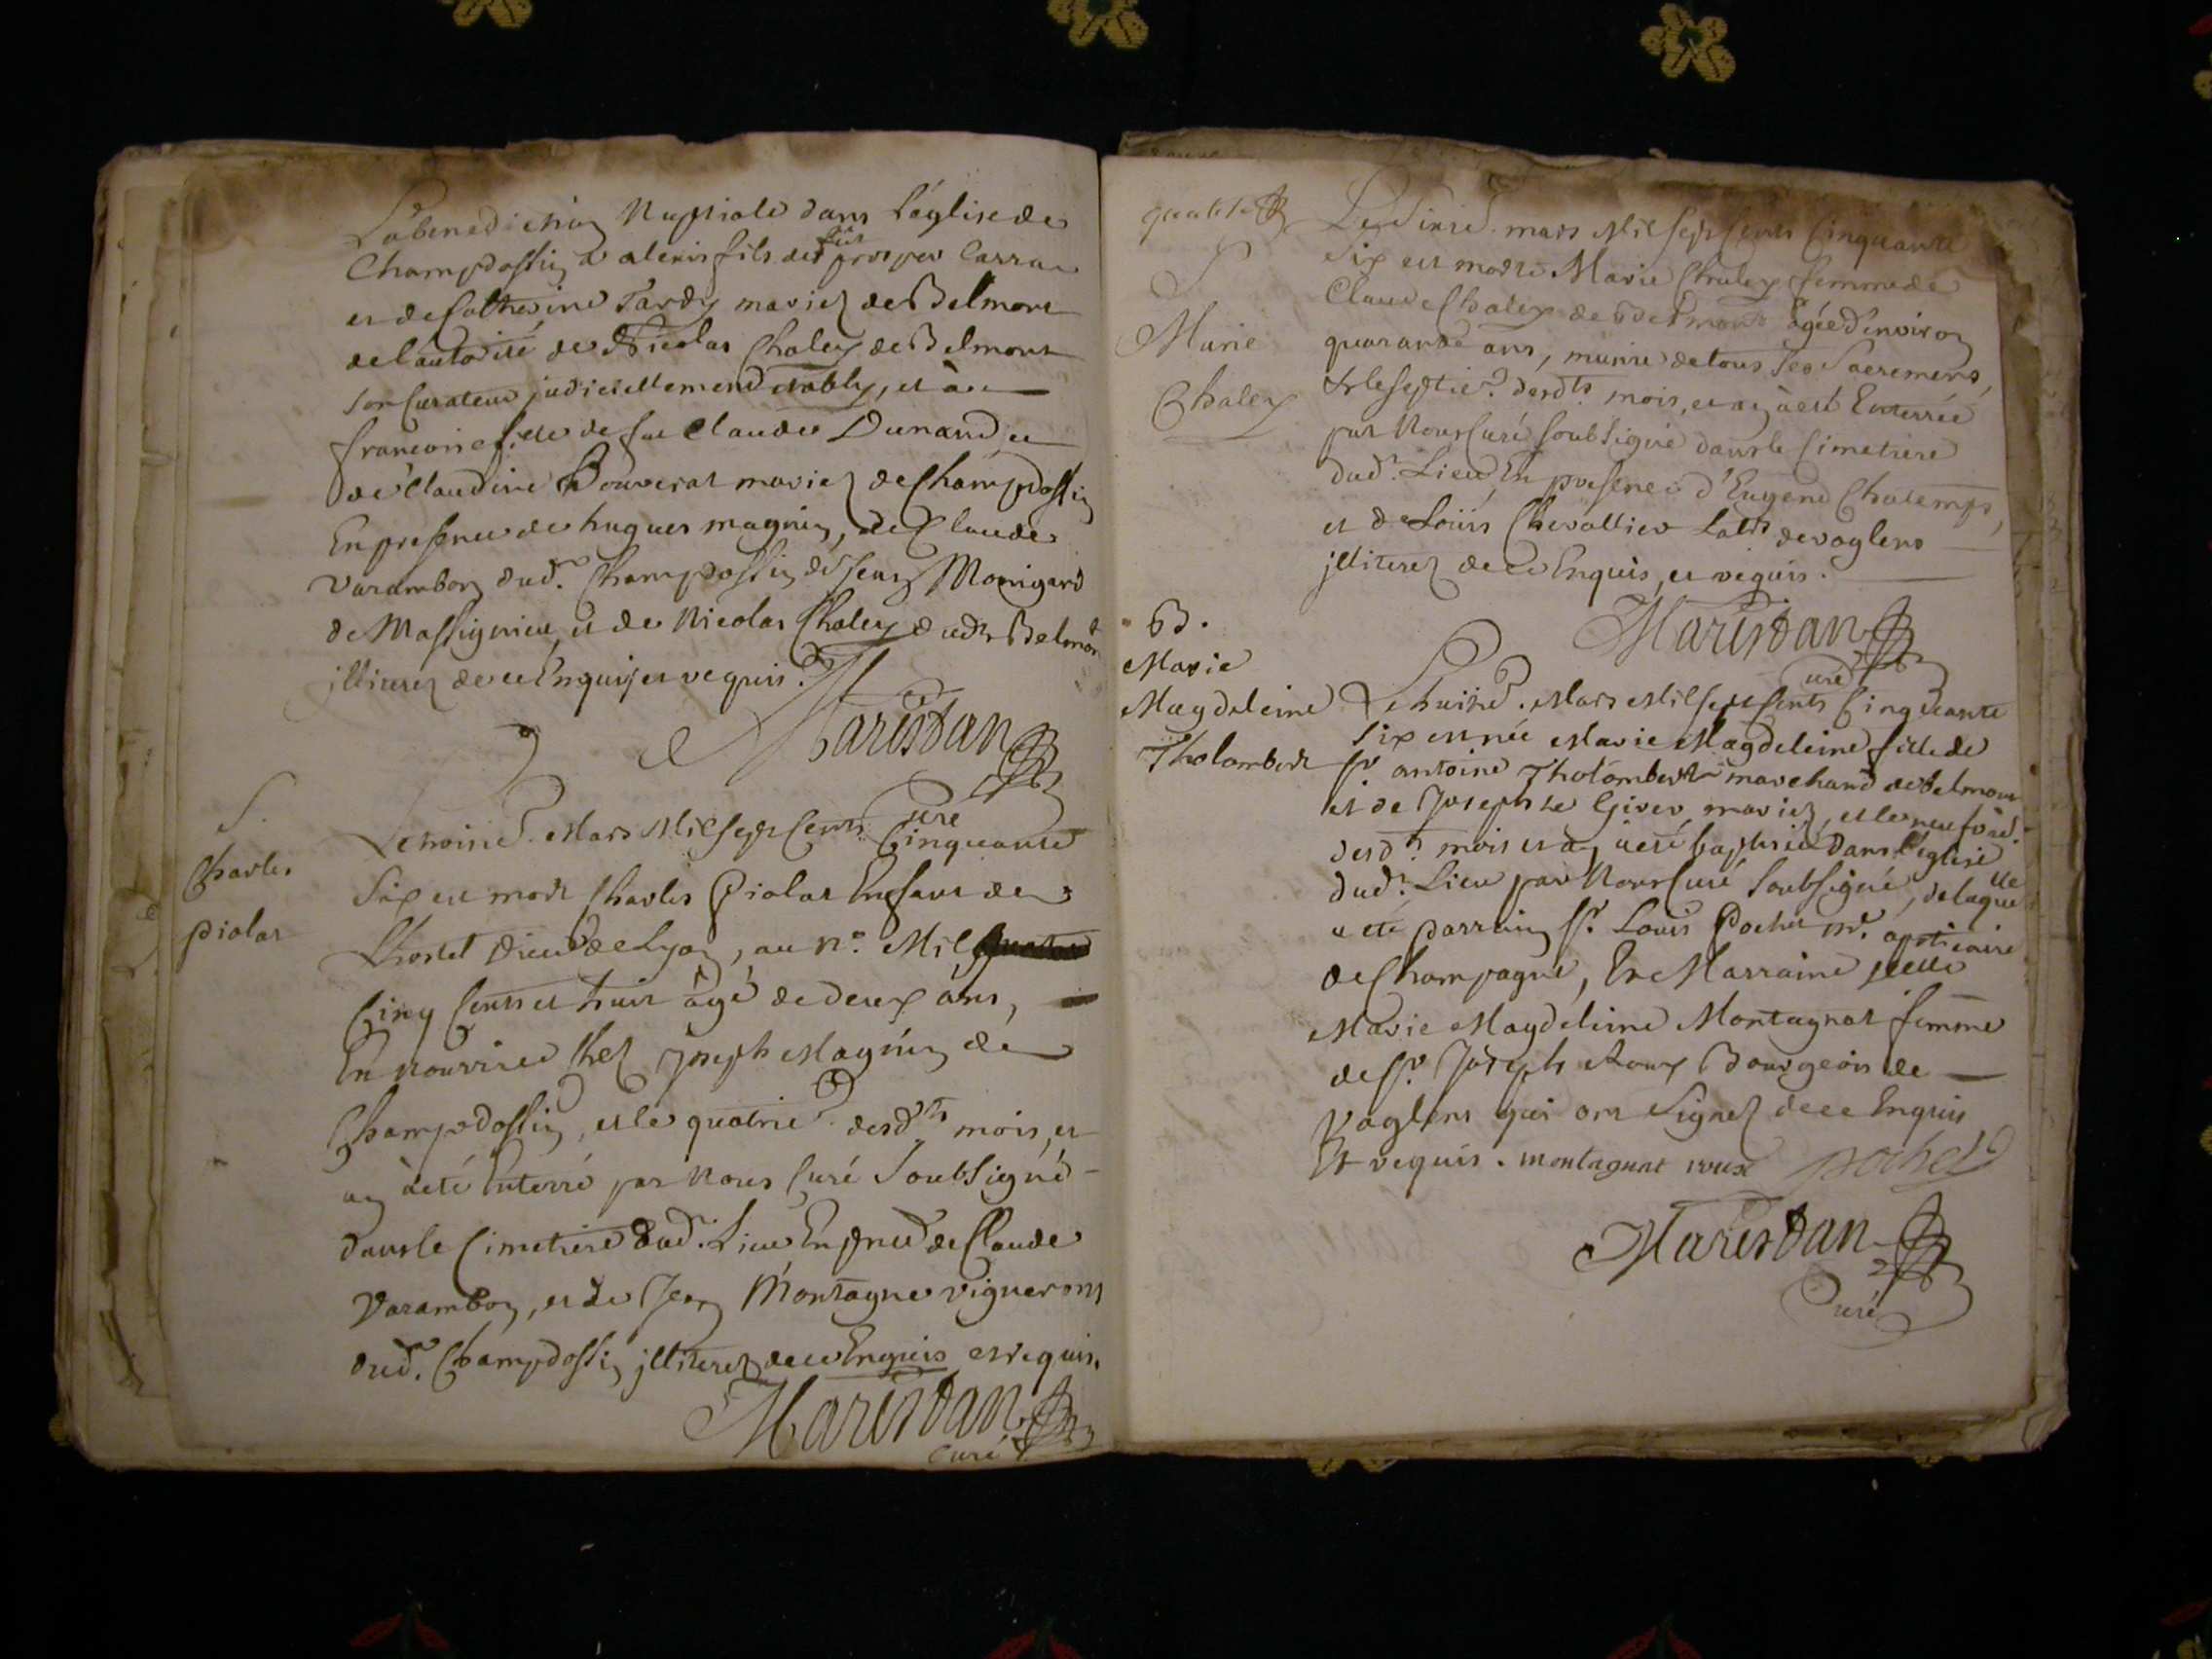 Labenediction Nuptiale dans L'église de
Champdossin a alexis fils de feu prosper Carra
et de Catherine Tardy mariez de Belmont
de l'autorité de Nicolas Chaley de Belmont
son Curateur judiciellement etably, et à
francoise fille de feu Claude Dunand et
de Claudine Bouverat mariez de Champdossin
En presence de hugues magnin, de Claude
Varambon dud.t Champdossin de Jean Monigard
de Massignieu, et de Nicolas Chaley dudt Belmont
illiterez de ce Enquis et requis.
Maristan
Curé
S.
Charles
piolat
Le troisie. Mars Mil sept cents Cinquante
Six est mort Charles Piolat Enfant de
L'hostel Dieu de Lyon, au n.o Mil
Cinq cents et huit âgé de deux ans,
En nourrice chez Joseph Magnin de
Champdossin, et le quatrie. desd.ts mois, et
an à eté Enterré par Nous Curé Soubsigné
dans le Cimetiere dud. Lieu En pnce de Claude
Varambon, et de Jean Montagne vignerons
dud. Champdossin illiterez de ce Enquis et requis.
Maristan
curé
qualité
S
Marie
Chaley
Le Sixie. mars Mil sept cents Cinquante
Six est morte Marie Chaley femme de
Claude Chaley de Belmont âgée d'environ
quarante ans, munie de tous ses Sacrements,
Et le septie. desd.ts mois, et an à esté Enterrée
par Nous Curé soubsigné dans le Cimetiere
dud.t Lieu En presence d'Eugene Chatemps,
et de Loüis Chevallier Lab.rs de voglens
illiterez de ce Enquis, et requis.
Maristan
Curé
B.
Marie
Magdeleine
Tholombert
Le huitie. Mars Mil sept cents Cinquante
Six est née Marie Magdeleine fille de
Sr. antoine Tholombert marchand de belmont
et de Josephte Giver mariez, et le neufvie.
desd.ts mois et an à esté baptisée dans l'église
dud.t Lieu par Nous Curé Soubsigné, de laquelle
a eté parrain Sr. Louis Pochet m.e apoticaire
de Champagne, Et Marraine delle
Marie Magdeleine Montagnat femme
de Sr. Joseph Roux Bourgeois de
Voglens qui ont signez de ce Enquis
Et requis. montagnat roux pochet
Maristan
Curé